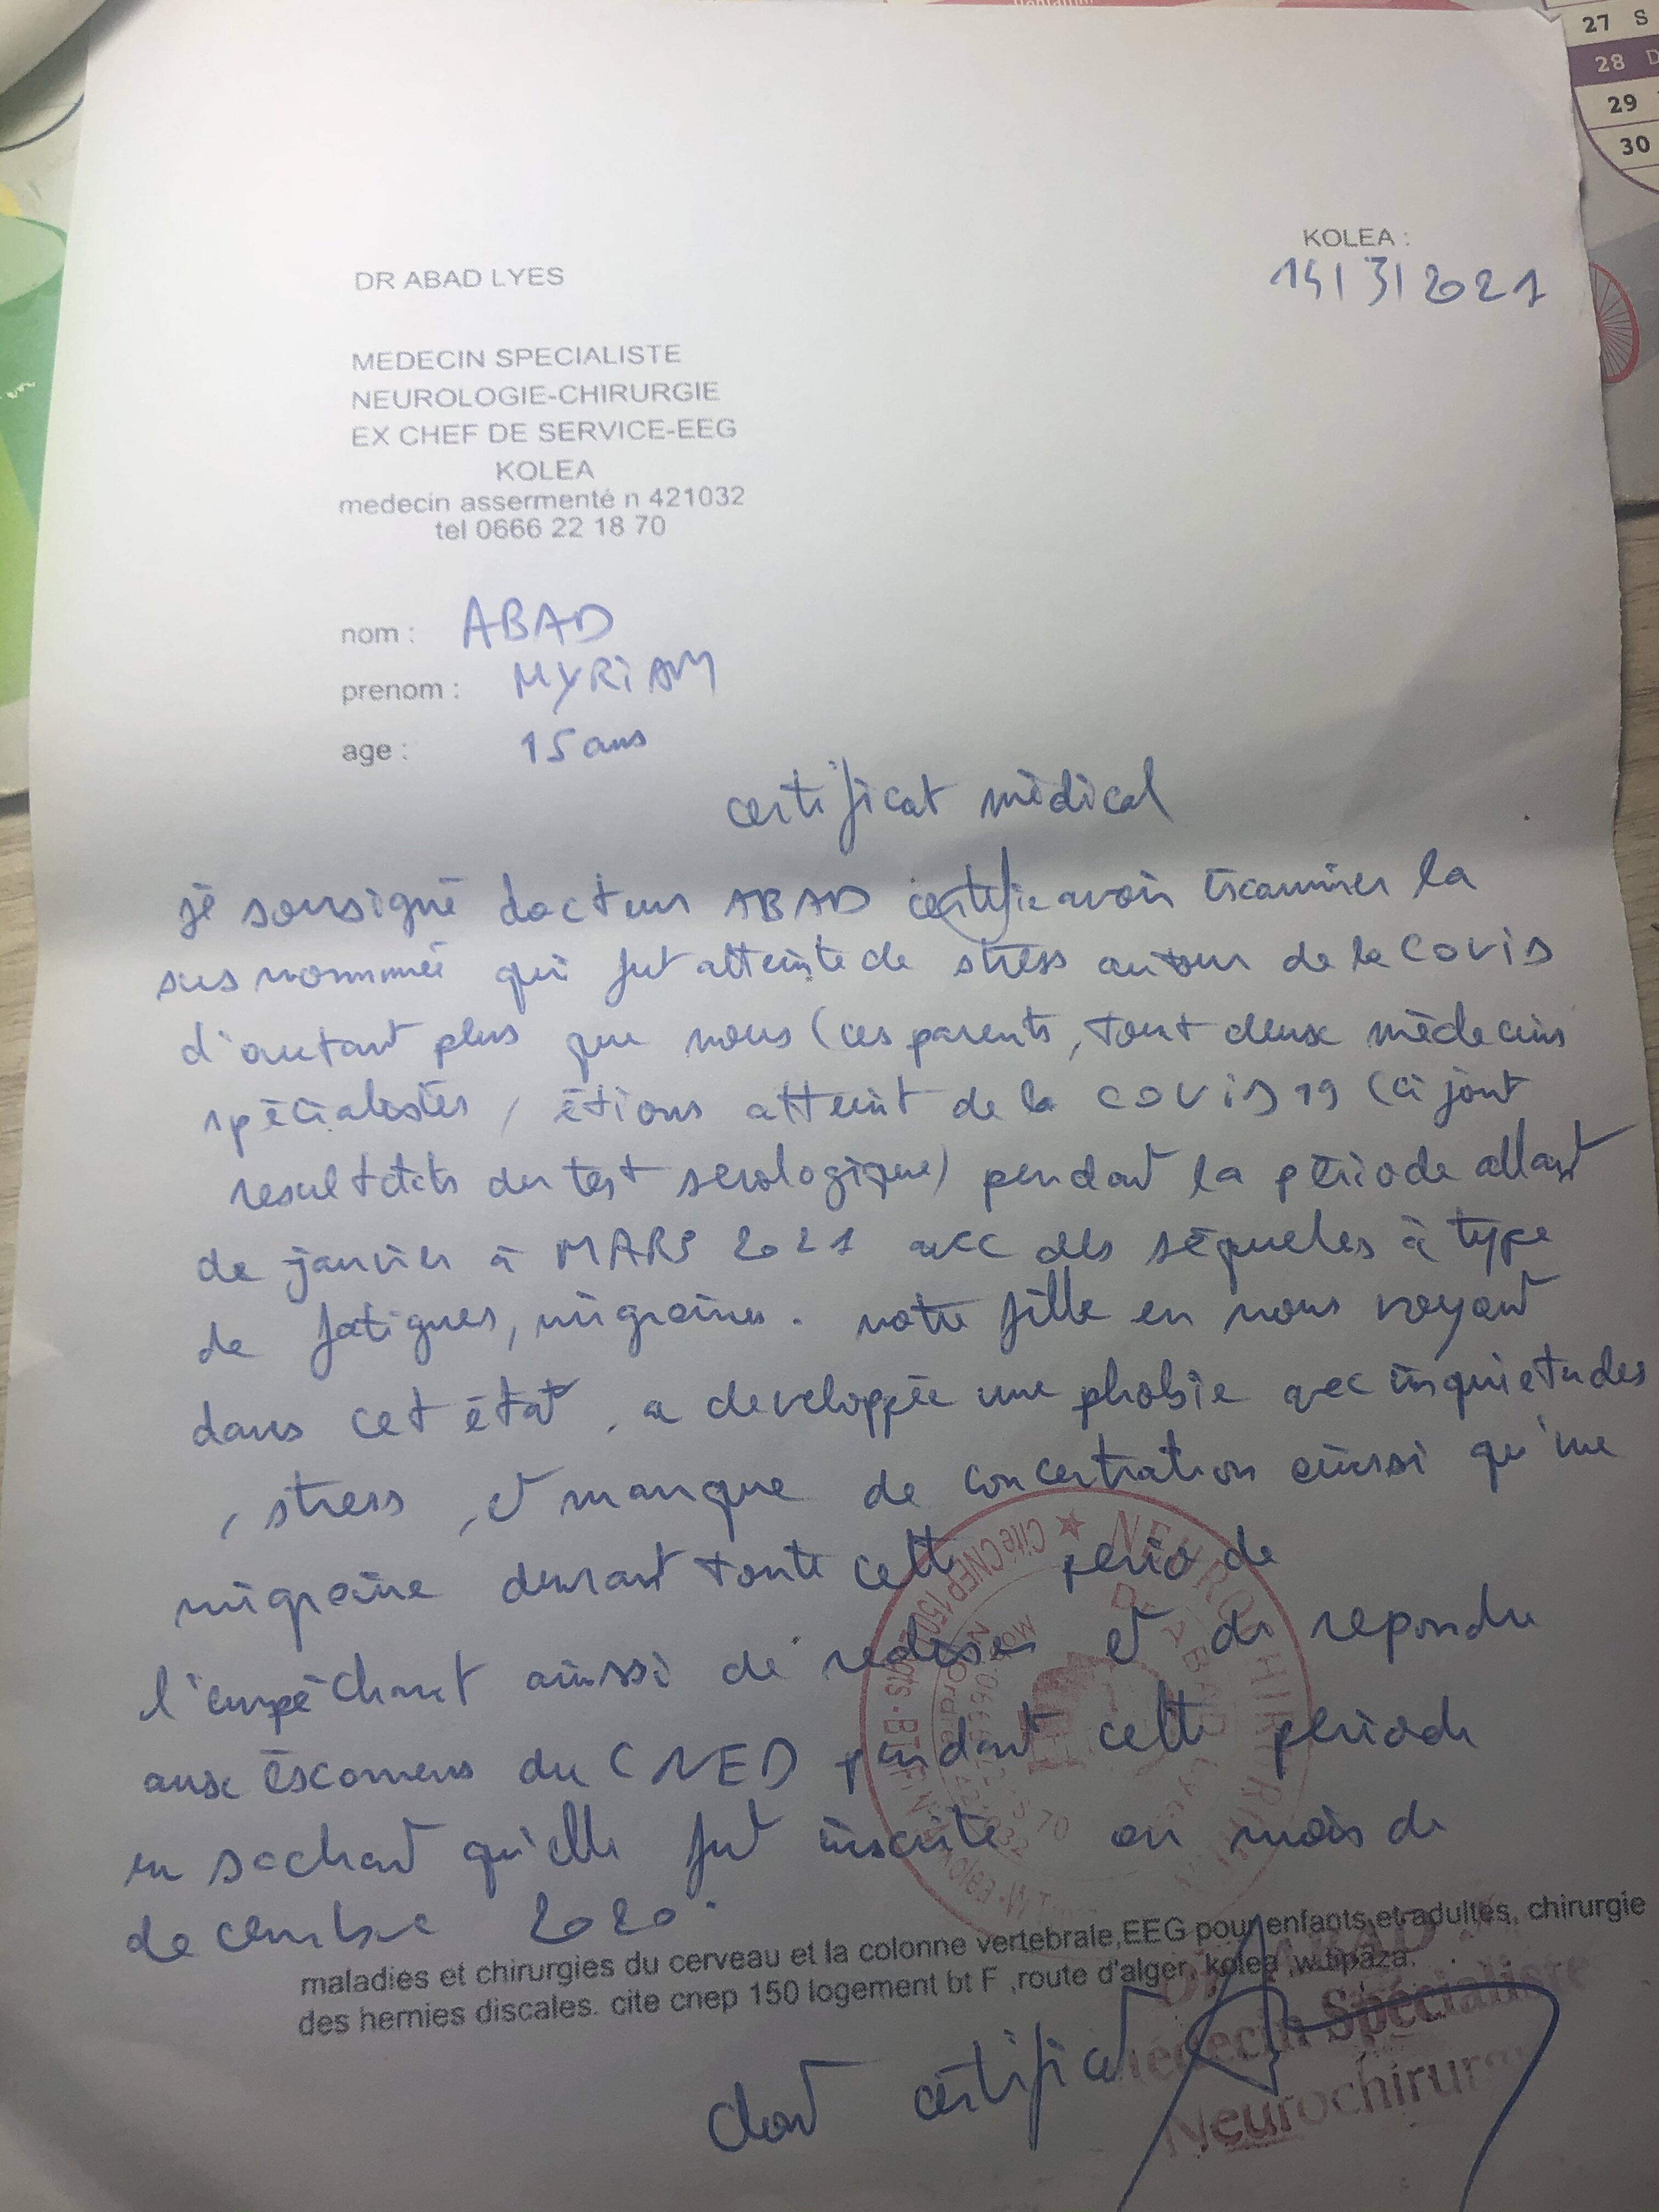 27 S
28 D
29
30
KOLEA :
DR ABAD LYES
MEDECIN SPECIALISTE
NEUROLOGIE-CHIRURGIE
EX CHEF DE SERVICE-EEG
KOLEA
medecin assermenté n 421032
tel 0666 22 18 70
nom : ABAD
prenom : MYRiAM
age : 15 ans
certificat médical
je sousigné docteur ABAD certifie avoir éxaminer la
sus nommée qui fut atteinte de stress autour de la COVID
d'autant plus que nous (ces parents, tout deux médecins
spécialistes, étions atteint de la COVID 19 (ci joint
resultats du test serologique) pendant la période allant
de janvier à MARS 2021 avec des séqueles à type
de fatigues, migraines. notre fille en nous voyant
dans cet état, a developpée une phobie avec inquietudes
, stress, et manque de concentration ainsi qu'une
migraine durant toute cette periode
l'empêchant aussi de rediser et de repondre
aux éxamens du CNED pendant cette période
en sachant qu'elle fut inscrite au mois de
decembre 2020.
maladies et chirurgies du cerveau et la colonne vertebrale,EEG pour enfants et adultes, chirurgie
des hernies discales. cite cnep 150 logement bt F ,route d'alger, kolea ,w.tipaza.
dont certificat
NEUROCHIRURGIEN
Dr ABAD Lyes
Cité CNEP 150
Dr ABAD
Médecin Spécialiste